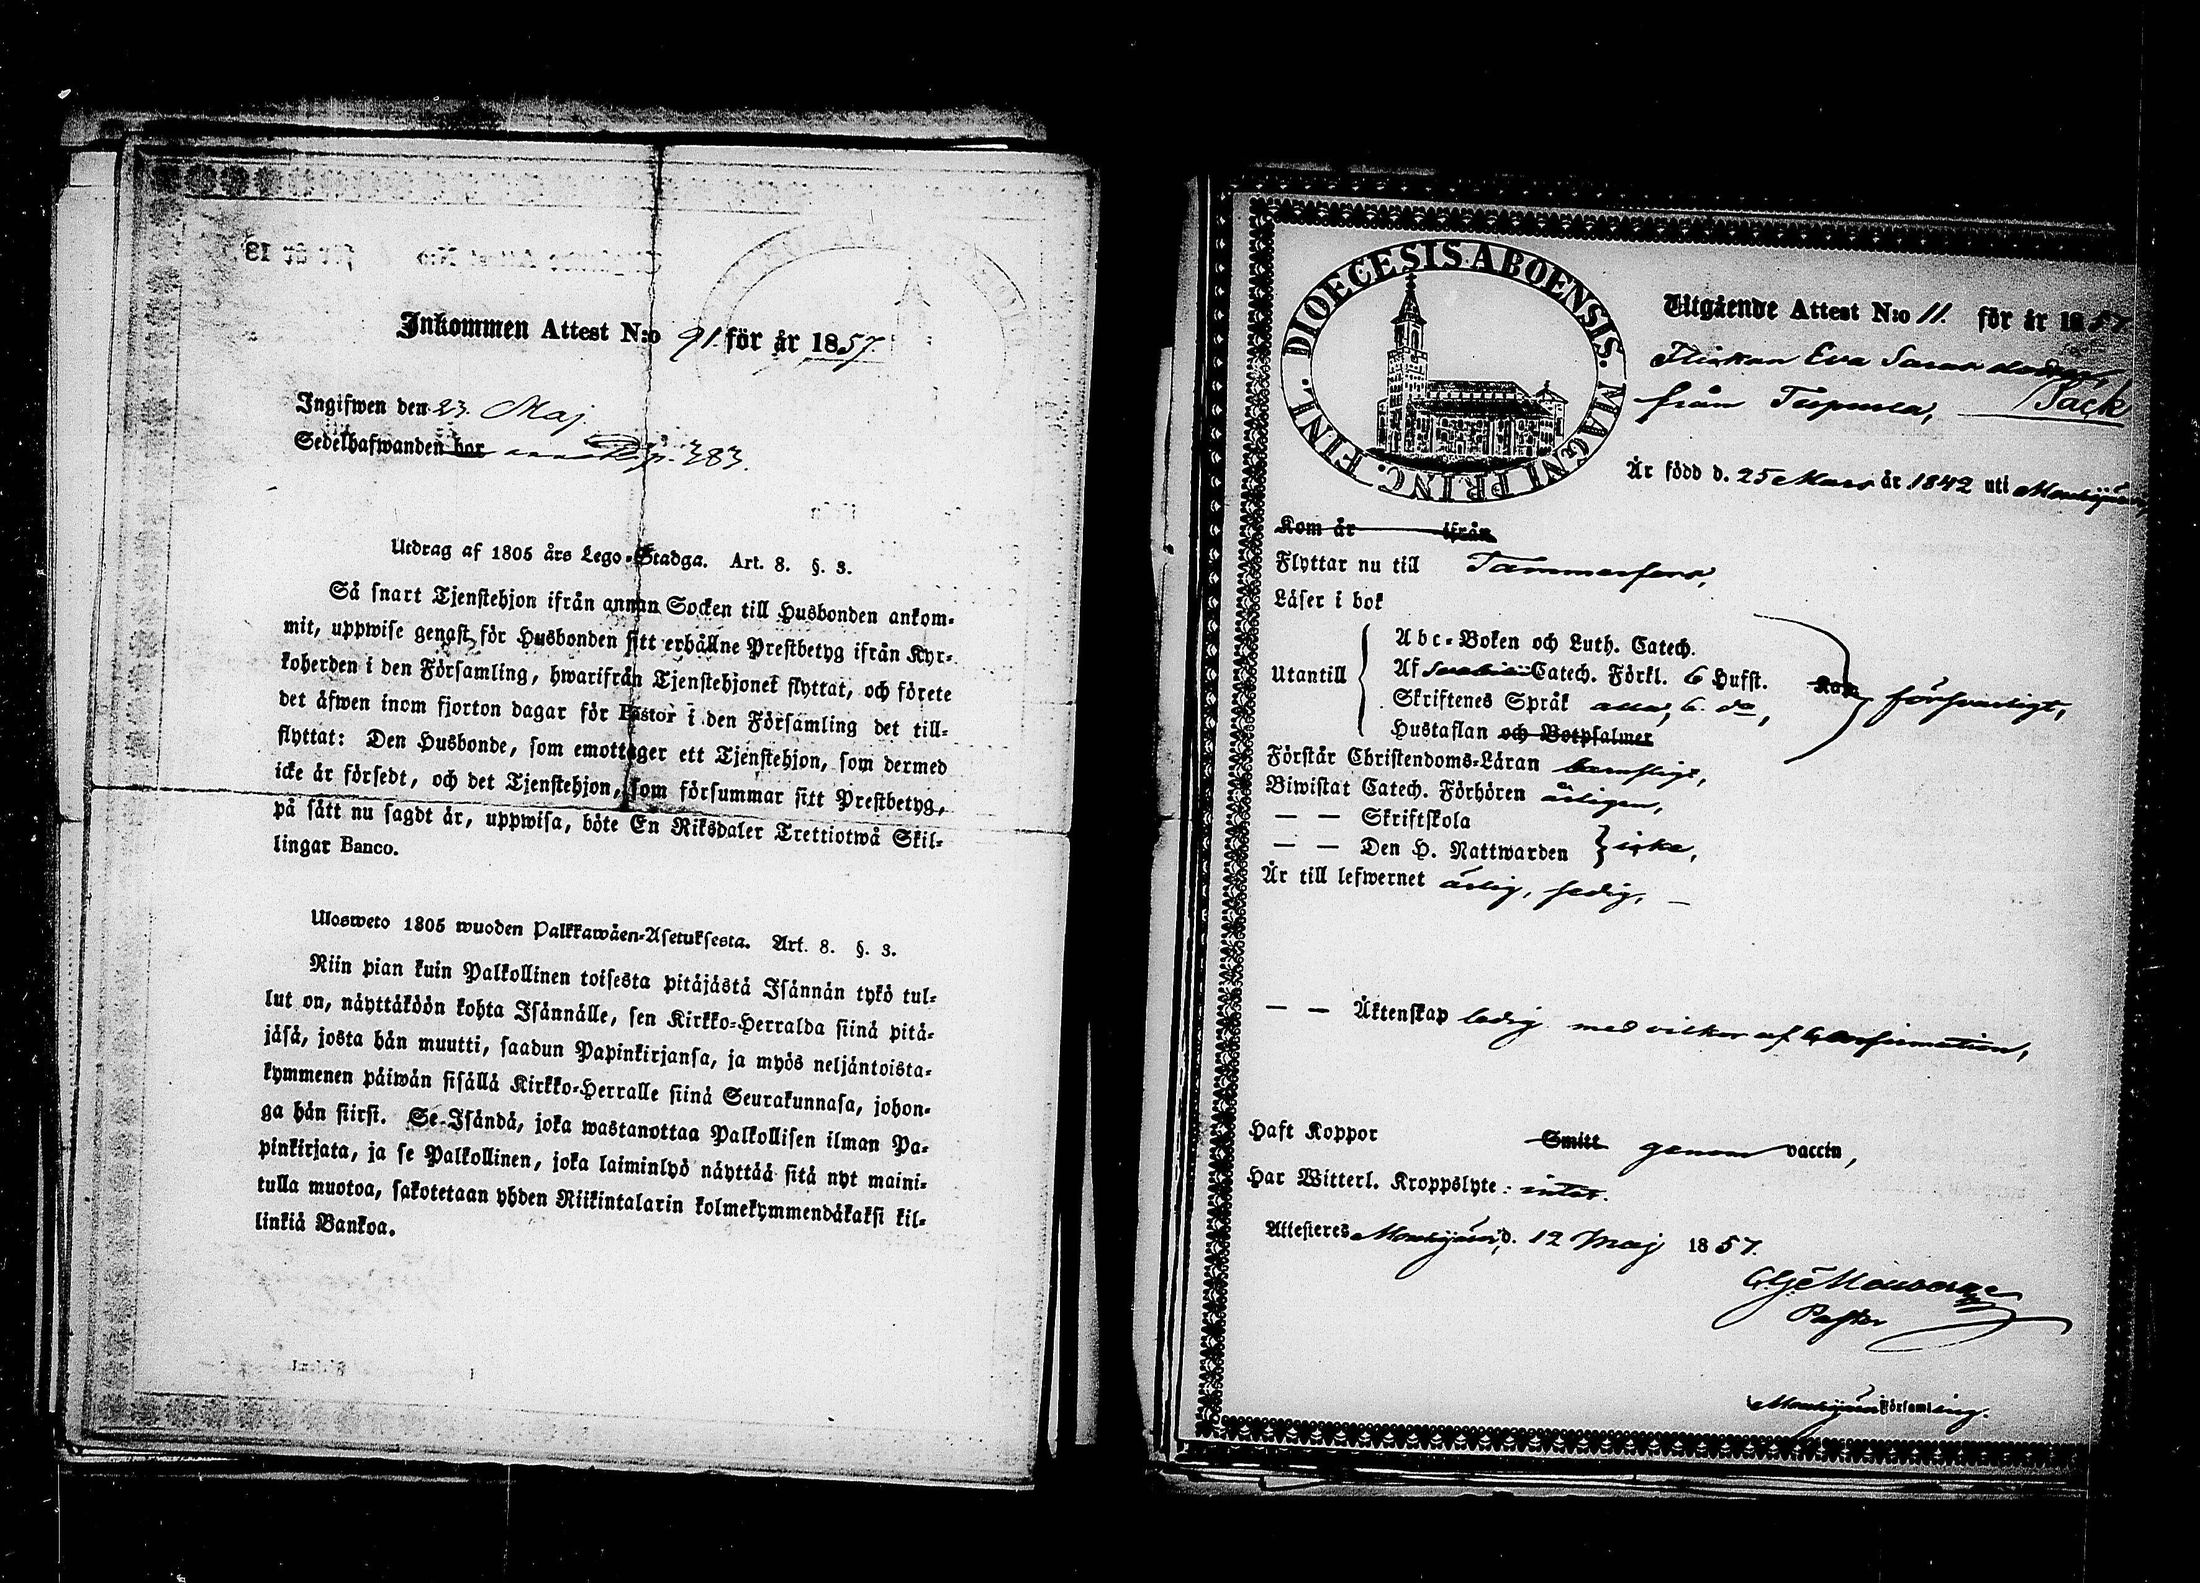 Inkommen Attest N:o 91. för år 1857.
Ingifwen den 23. Maj.
Sedelhafwanden bor p. 383.
Utdrag af 1805 års Lego-Stadga. Art. 8. §. 3.
Så snart Tjenstehjon ifrån annan Socken till Husbonden ankom-
mit, uppwise genast för Husbonden sitt erhållne Prestbetyg ifrån Kyr-
koherden i den Församling, hwarifrån Tjenstehjonet flyttat, och förete
det äfwen inom fjorton dagar för Pastor i den Församling det till-
flyttat: Den Husbonde, som emottager ett Tjenstehjon, som dermed
icke är försedt, och det Tjenstehjon, som försummar sitt Prestbetyg,
på sätt nu sagdt är, uppwisa, böte En Riksdaler Trettiotwå Skil-
lingar Banco.
Ulosweto 1805 wuoden Palkkawäen-Asetuksesta. Art. 8. §. 3.
Niin pian kuin Palkollinen toisesta pitäjästä Isännän tykö tul-
lut on, näyttäköön kohta Isännälle, sen Kirkko-Herralda siinä pitä-
jäsä, josta hän muutti, saadun Papinkirjansa, ja myös neljäntoista-
kymmenen päiwän sisällä Kirkko-Herralle siinä Seurakunnasa, johon-
ga hän siirsi. Se Isändä, joka wastanottaa Palkollisen ilman Pa-
pinkirjata, ja se Palkollinen, joka laiminlyö näyttää sitä nyt maini-
tulla muotoa, sakotetaan yhden Riikintalarin kolmekymmendäkaksi kil-
linkiä Bankoa.
DIOECESIS ABOENSIS. MAGNI PRINC. FINL.
Utgående Attest N:o 11. för år 1857
Flickan Eva Saras dotter
från Tupurla, Pack
Är född d. 25 Mars år 1842 uti Mouhijärvi
Kom år ifrån
Flyttar nu till Tammerfors,
Läser i bok
Utantill
Abc-Boken och Luth. Catech.
Af Svebilii Catech. Förkl. 6 Hufst.
Skriftenes Språk alla, 6. do,
Hustaflan och Botpsalmer
Kap försvarligt,
Förstår Christendoms-Läran hemsligt,
Biwistat Catech. Förhören årligen,
— — Skriftskola
— — Den H. Nattwarden icke,
Är till lefwernet ärlig, sedig,
— — Äktenskap ledig med vilkor af Confirmation,
Haft Koppor Smitt genom vaccin,
Har Witterl. Kroppslyte: intet.
Attesteres Mouhijärvi, d. 12 Maj 1857.
Pastor
Mouhijärvi Församling.